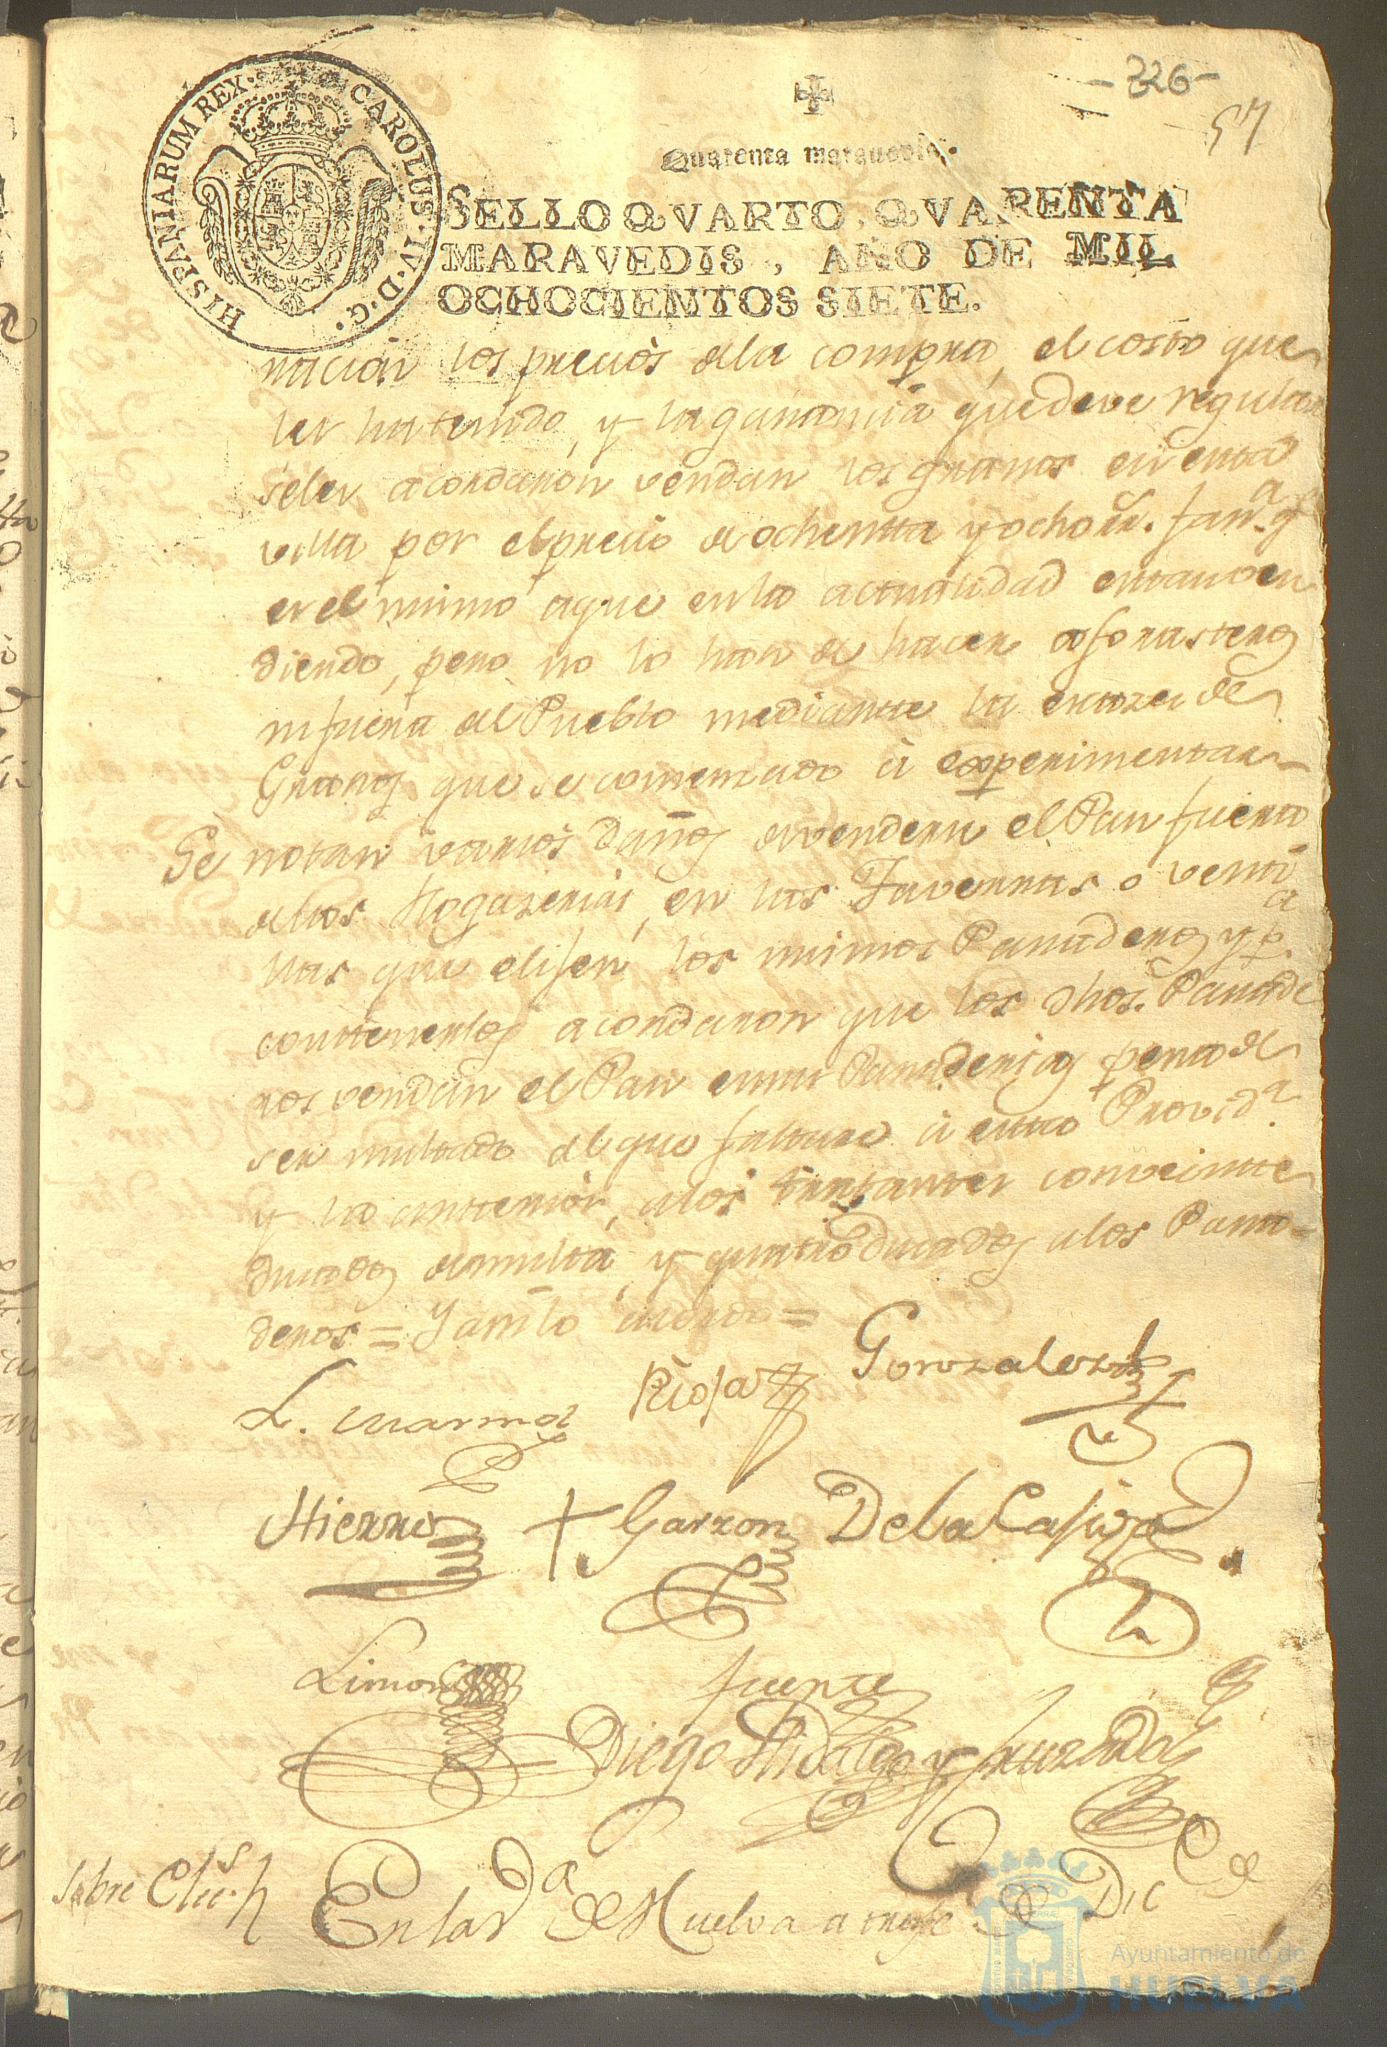 -326-
57
HISPANIARUM REX. CAROLUS. IV. D. G.
Quarenta maravedis.
SELLO QVARTO, QVARENTA
MARAVEDIS, AÑO DE MIL
OCHOCIENTOS SIETE.
nacion los precios dela compra, el costo que
les ha tenido, y la ganancia que deve regular
seles acordaron vendan los granos en esta
villa por el precio de ochentta y ocho rr. fan.ª q
es el mismo aque en la actualidad estan ven
diendo, pero no lo han de hacer a forasteros
ni fuera del Pueblo mediantte la escazes de
Granos que se comenzado à experimentar
Se notan varios daños de venderse el Pan fuera
delas Hogazerias, en las Tavernas o venta
nas que elijen los mismos Panaderos y p.ª
conttenerlos acordaron que los dhos. Panade
ros vendan el Pan en sus Panaderias pena de
ser multado el que faltare à esta Provid.ª
y la antterior, a los tratantes con veintte
ducados de multa, y quatro ducados a los Pana-
deros = Y asi lo acordo =
L. Marmol
Rioja
Gonzalez
Hierro
+ Garzon
De la Casiva
Limon
fuente
Diego Hidalgo y Quezada
Sobre
En la v.ª de Huelva a trese de Dic.e de
Ayuntamiento de
HUELVA